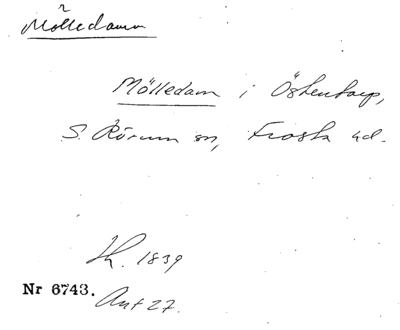 Mölledamm
Mölledam i Östentorp,
S. Rörum sn, Frosta hd.
Hk. 1839
Nr 6743.
Ant 27.